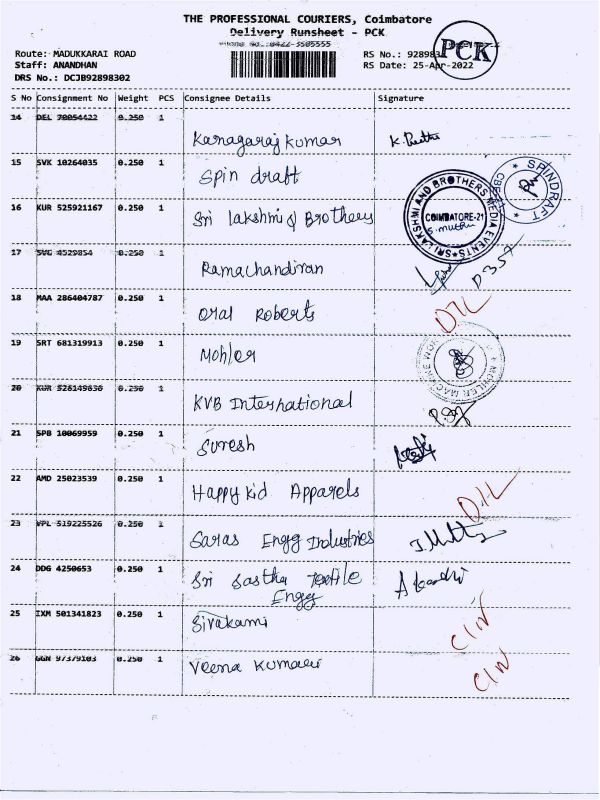 THE PROFESSIONAL COURIERS, Coimbatore
Delivery Runsheet - PCK
Phone No.:0422-3505555
Route: MADUKKARAI ROAD
Staff: ANANDHAN
DRS No.: DCJB92898302
RS No.: 92898
RS Date: 25-Apr-2022
PCK
S No Consignment No Weight PCS Consignee Details Signature
14 DEL 70054422 0.250 1 Kanagaraj kumar
15 SVK 10264035 0.250 1 Spin draft
SPINDRAFT
16 KUR 525921167 0.250 1 Sri lakshmi & Brothers
SRI LAKSHMI AND BROTHERS MEDIA EVENTS
COIMBATORE-21
S.muthu
17 SVG 4529854 0.250 1 Ramachandiran D 357
18 MAA 286404787 0.250 1 Oral Roberts D/L
19 SRT 681319913 0.250 1 Mohler
MOHLER MACHINE WOR
20 KUR 526149630 0.250 1 KVB International
21 SPB 10069959 0.250 1 Suresh
22 AMD 25023539 0.250 1 Happy kid Apparels D/L
23 VPL 519225526 0.250 1 Saras Engg Industries
24 DDG 4250653 0.250 1 Sri Sastha Textile
Engg
25 IXM 501341823 0.250 1 Sivakami C/N
26 GGN 97379103 0.250 1 Veena Kumari C/N